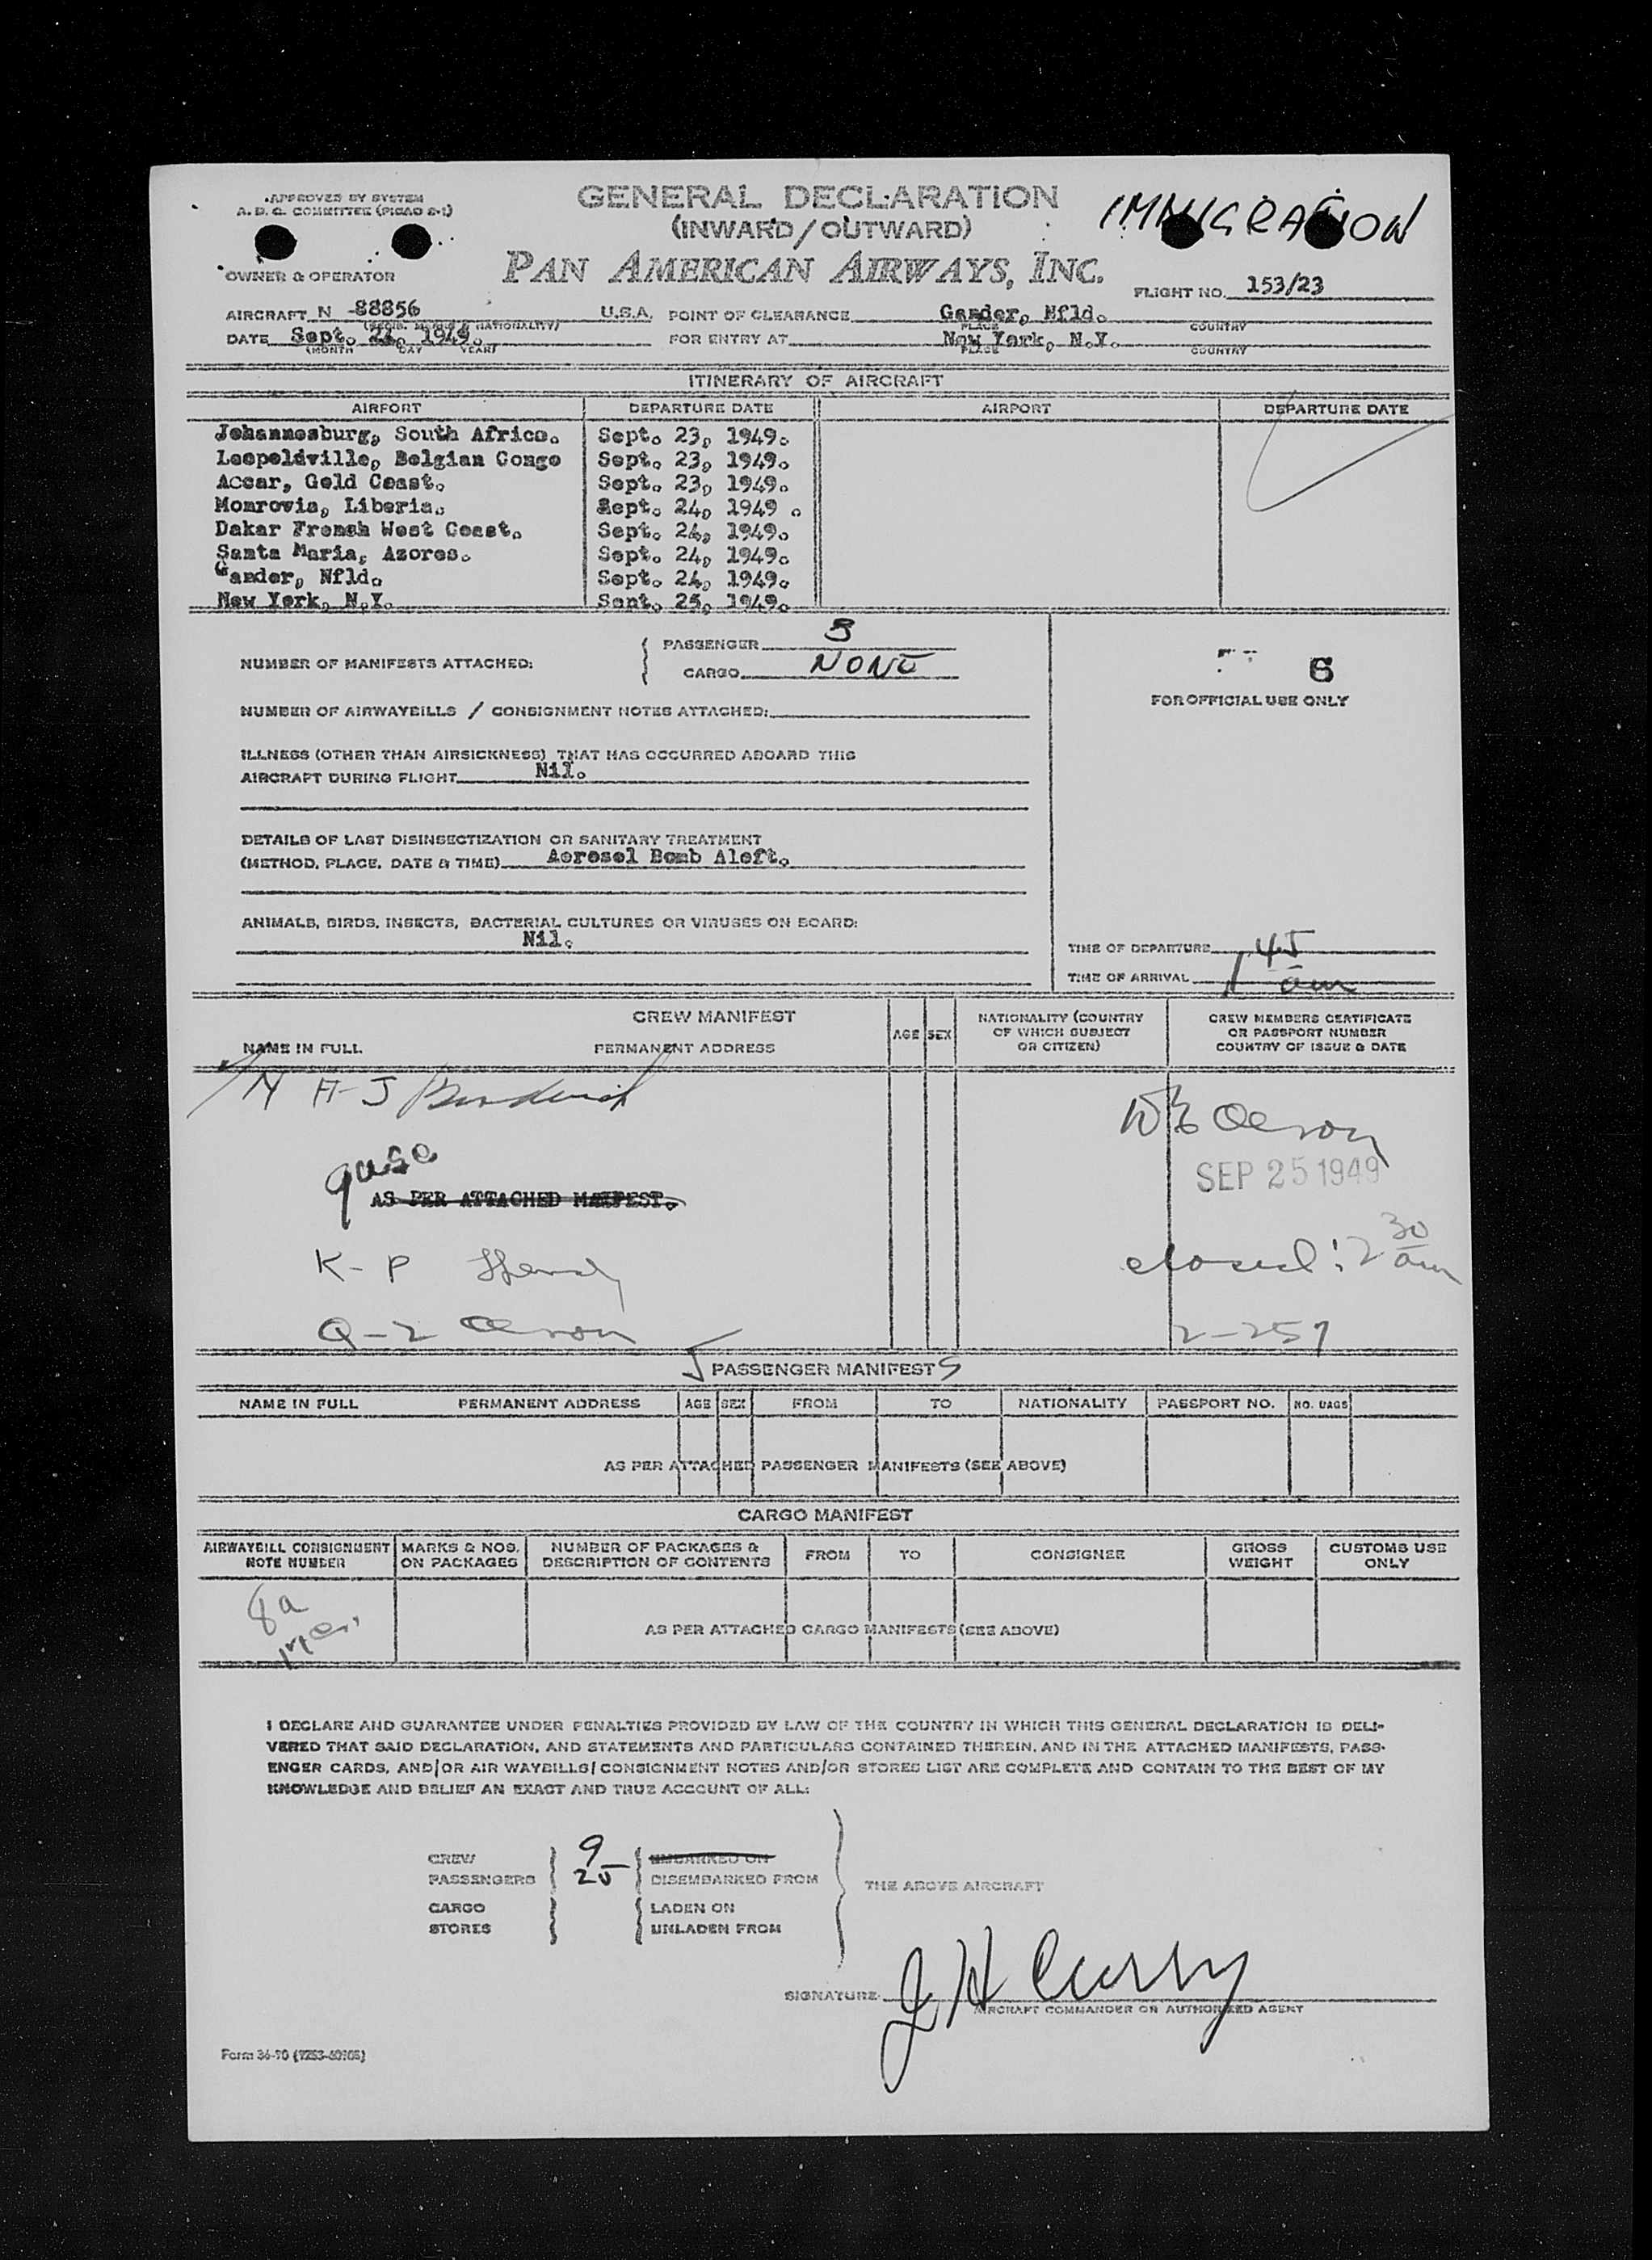 APPROVED BY SYSTEM
A. D. C. COMMITTEE (PICAO 2-1)
GENERAL DECLARATION
(INWARD/OUTWARD)
IMMIGRATION
OWNER & OPERATOR
PAN AMERICAN AIRWAYS, INC.
FLIGHT NO. 153/23
AIRCRAFT N -88856 U.S.A. POINT OF CLEARANCE Gander, Nfld.
(REGIS. MARKS & NATIONALITY) PLACE COUNTRY
DATE Sept. 24, 1949. FOR ENTRY AT New York, N.Y.
(MONTH DAY YEAR) PLACE COUNTRY
ITINERARY OF AIRCRAFT
AIRPORT DEPARTURE DATE AIRPORT DEPARTURE DATE
Johannesburg, South Africa. Sept. 23, 1949.
Leopoldville, Belgian Congo Sept. 23, 1949.
Accar, Gold Coast. Sept. 23, 1949.
Monrovia, Liberia. Sept. 24, 1949 .
Dakar French West Coast. Sept. 24, 1949.
Santa Maria, Azores. Sept. 24, 1949.
Gander, Nfld. Sept. 24, 1949.
New York, N.Y. Sept. 25, 1949.
NUMBER OF MANIFESTS ATTACHED:
PASSENGER 3
CARGO NONE
6
FOR OFFICIAL USE ONLY
NUMBER OF AIRWAYBILLS / CONSIGNMENT NOTES ATTACHED:
ILLNESS (OTHER THAN AIRSICKNESS) THAT HAS OCCURRED ABOARD THIS
AIRCRAFT DURING FLIGHT Nil.
DETAILS OF LAST DISINSECTIZATION OR SANITARY TREATMENT
(METHOD, PLACE, DATE & TIME) Aerosol Bomb Aloft.
ANIMALS, BIRDS, INSECTS, BACTERIAL CULTURES OR VIRUSES ON BOARD:
Nil.
TIME OF DEPARTURE
TIME OF ARRIVAL 1 45 am
CREW MANIFEST
NAME IN FULL PERMANENT ADDRESS AGE SEX NATIONALITY (COUNTRY OF WHICH SUBJECT OR CITIZEN) CREW MEMBERS CERTIFICATE OR PASSPORT NUMBER COUNTRY OF ISSUE & DATE
H-J
SEP 25 1949
AS PER ATTACHED MANIFEST.
K-P
closed: 2 30 am
Q-Z
2-257
PASSENGER MANIFEST
NAME IN FULL PERMANENT ADDRESS AGE SEX FROM TO NATIONALITY PASSPORT NO. NO. BAGS
AS PER ATTACHED PASSENGER MANIFESTS (SEE ABOVE)
CARGO MANIFEST
AIRWAYBILL CONSIGNMENT NOTE NUMBER MARKS & NOS. ON PACKAGES NUMBER OF PACKAGES & DESCRIPTION OF CONTENTS FROM TO CONSIGNEE GROSS WEIGHT CUSTOMS USE ONLY
8a
AS PER ATTACHED CARGO MANIFESTS (SEE ABOVE)
I DECLARE AND GUARANTEE UNDER PENALTIES PROVIDED BY LAW OF THE COUNTRY IN WHICH THIS GENERAL DECLARATION IS DELI-
VERED THAT SAID DECLARATION, AND STATEMENTS AND PARTICULARS CONTAINED THEREIN, AND IN THE ATTACHED MANIFESTS, PASS-
ENGER CARDS, AND/OR AIR WAYBILLS/CONSIGNMENT NOTES AND/OR STORES LIST ARE COMPLETE AND CONTAIN TO THE BEST OF MY
KNOWLEDGE AND BELIEF AN EXACT AND TRUE ACCOUNT OF ALL:
CREW 9 EMBARKED ON
PASSENGERS 25 DISEMBARKED FROM
THE ABOVE AIRCRAFT
CARGO LADEN ON
STORES UNLADEN FROM
SIGNATURE J H Curry
AIRCRAFT COMMANDER OR AUTHORIZED AGENT